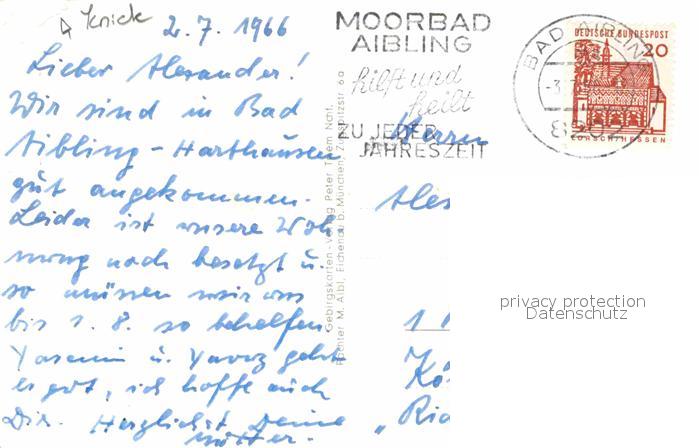 Knick
2.7.1966
Lieber Alexander!
Wir sind in Bad
Aibling-Harthausen
gut angekommen.
Leider ist unsere Woh-
nung noch besetzt u.
so müssen wir uns
bis 1.8. so behelfen.
Yasemin u. Yavuz geht
es gut, ich hoffe auch
Dir. Herzlichst Deine
Mutter.
MOORBAD
AIBLING
hilft und
heilt
ZU JEDER
JAHRESZEIT
BAD AIBLING
DEUTSCHE BUNDESPOST
20
LORSCH/HESSEN
Gebirgskarten-Verlag Peter
Pächter M. Aibl, Eichenau b. München, Zugspitzstr. 6a
Herrn
Alex
1 1
Kö
"Ria
privacy protection
Datenschutz